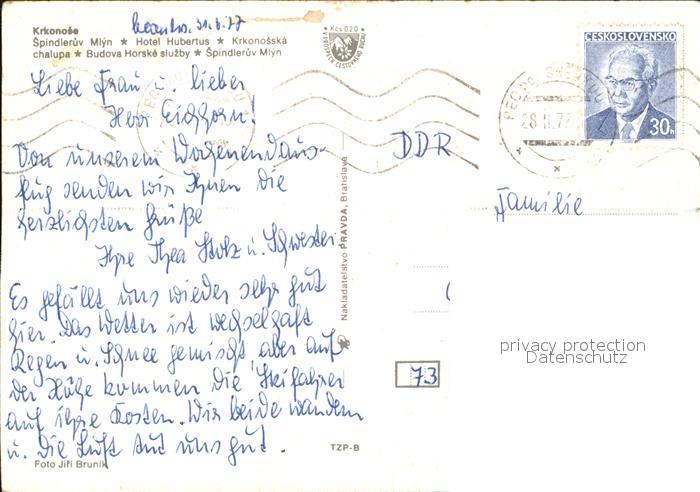 Krkonoše
Špindlerův Mlýn ★ Hotel Hubertus ★ Krkonošská
chalupa ★ Budova Horské služby ★ Špindlerův Mlýn
31.3.77
Kčs 0.20
ČESKOSLOVENSKO
30h
28.II.77
Liebe Frau u. lieber
Herr Eichhorn!
Von unserem Wochenendaus-
flug senden wir Ihnen die
herzlichsten Grüße
Ihre Thea Stolz u. Schwester
Es gefällt uns wieder sehr gut
hier. Das Wetter ist wechselhaft
Regen u. Schnee gemischt, aber auf
der Höhe kommen die Skifahrer
auf ihre Kosten. Wir beide wandern
u. die Luft tut uns gut.
Foto Jiří Bruník
TZP-B
Nakladatelstvo PRAVDA, Bratislava
DDR
Familie
73
privacy protection
Datenschutz